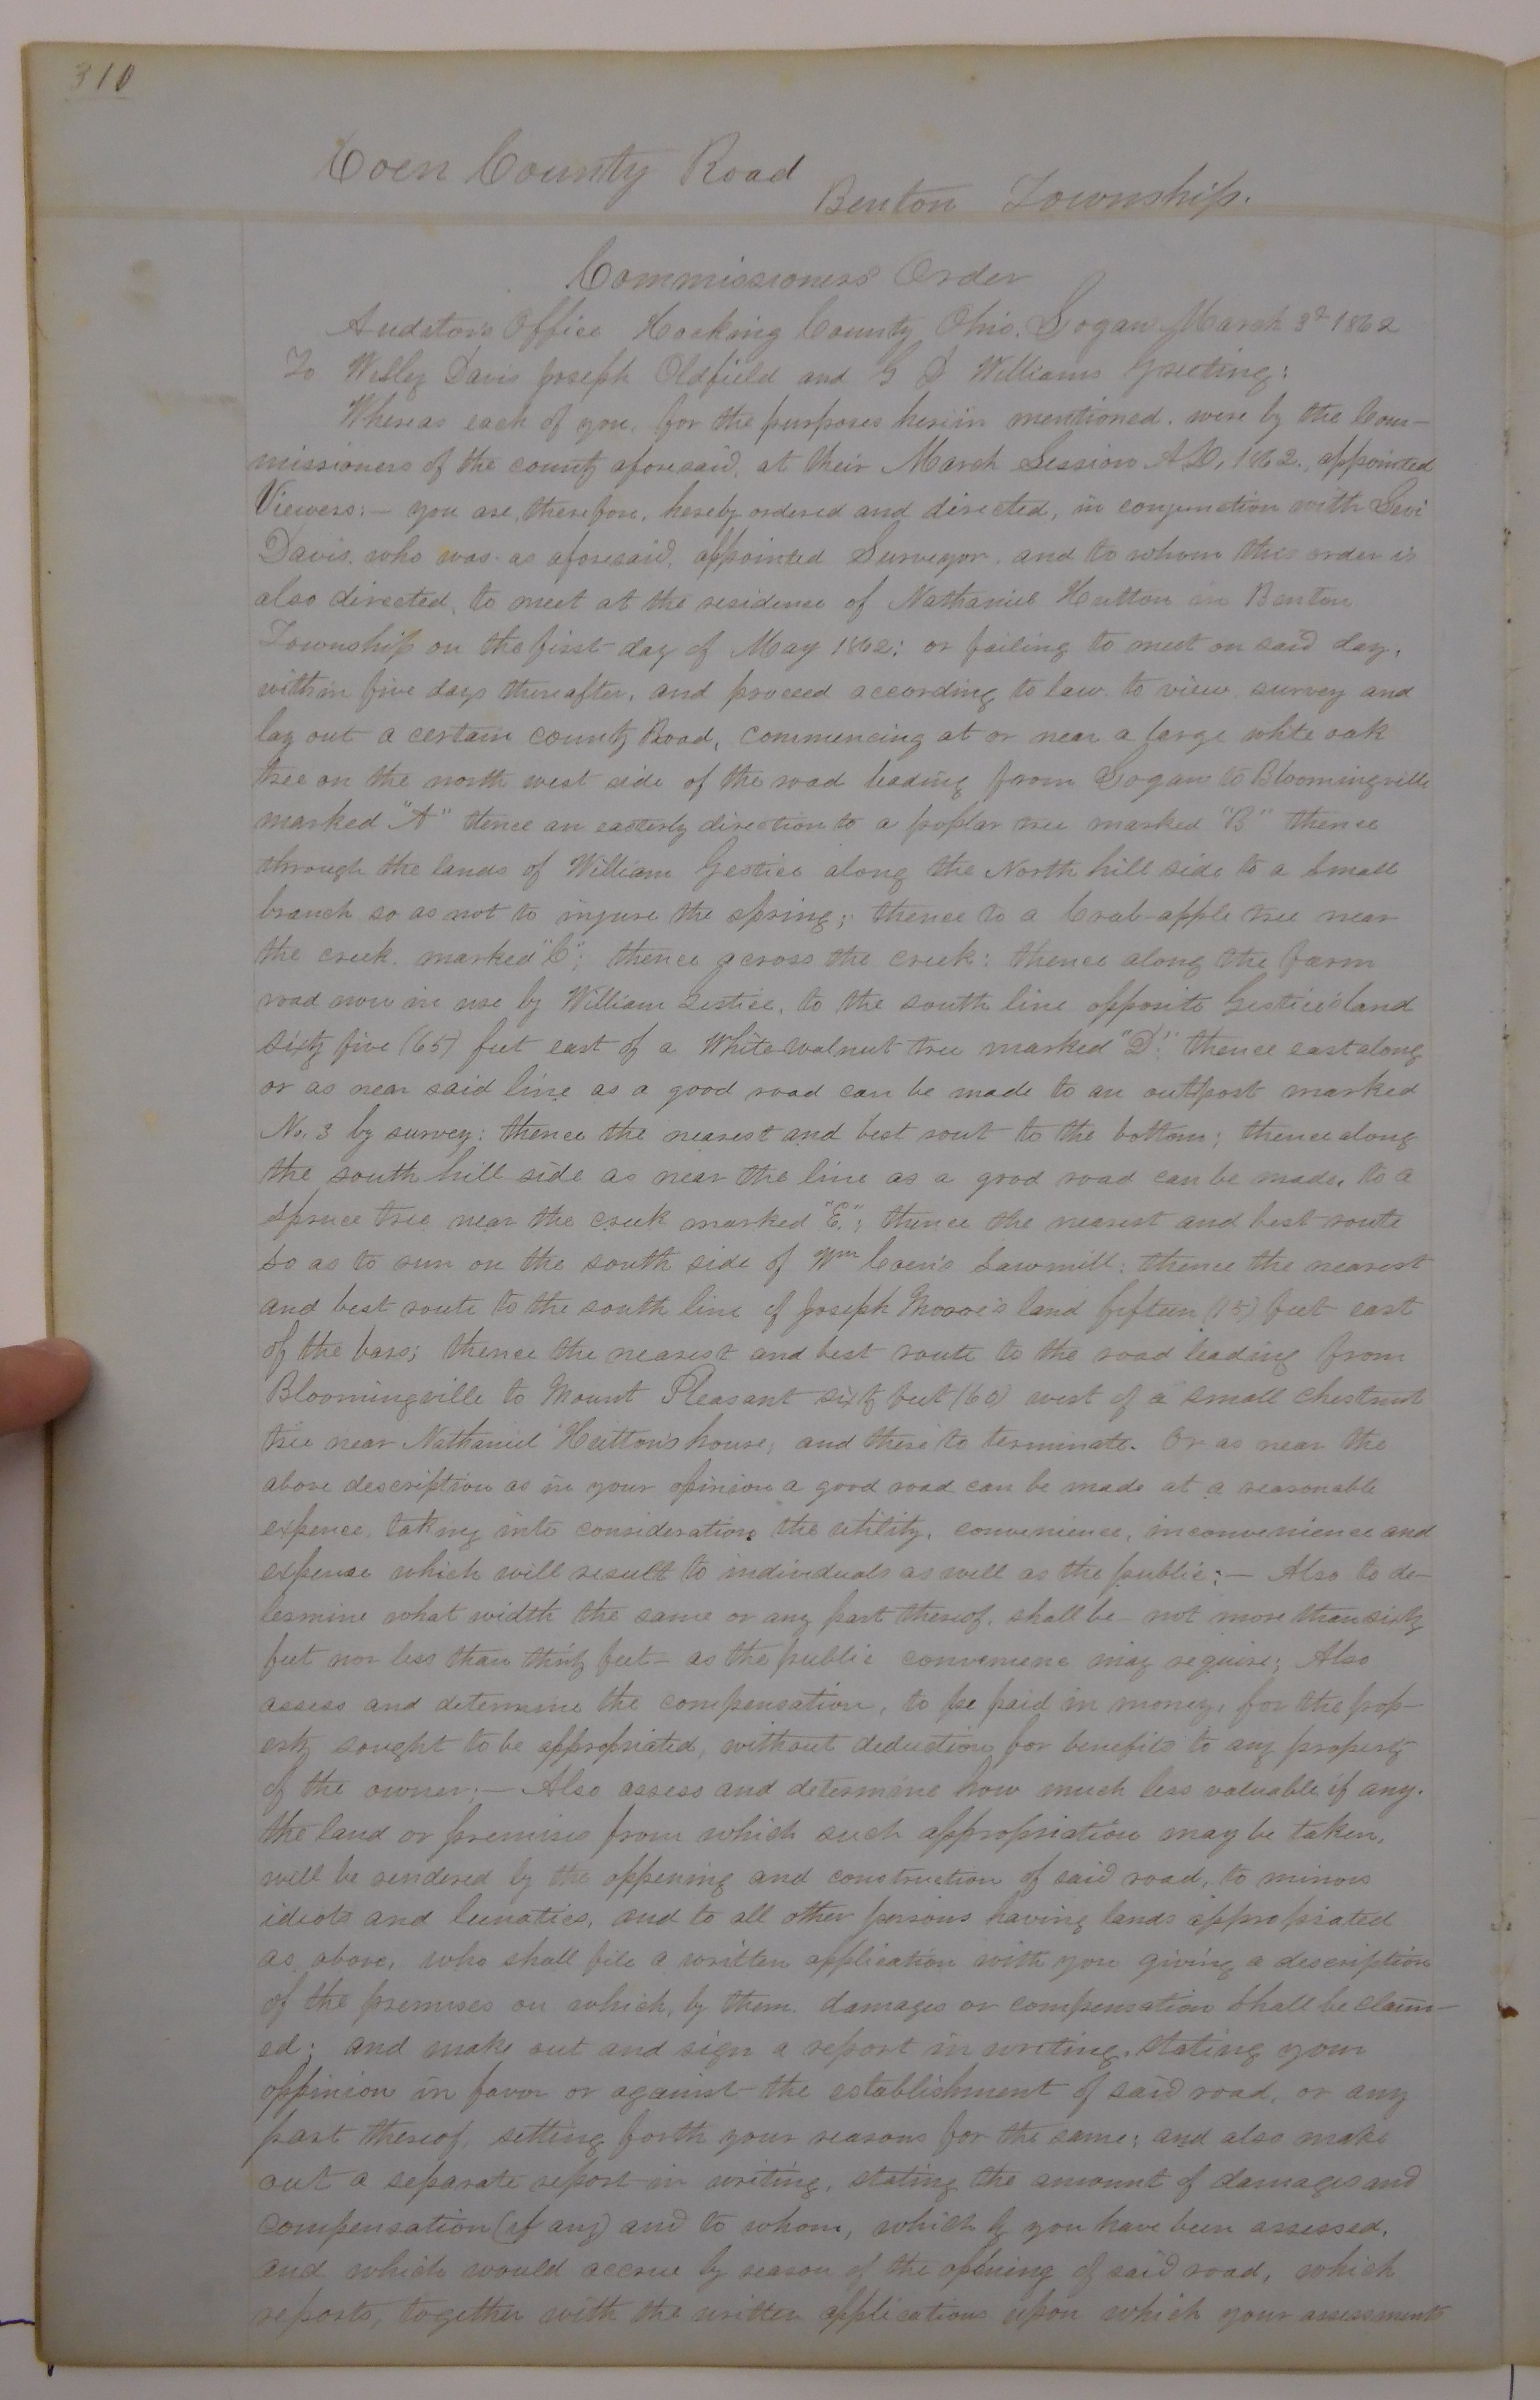 310
Coen County Road
Benton Township.
Commissioners Order
Auditors Office Hocking County Ohio. Logan March 3d 1862
To Wesley Davis Joseph Oldfield and G D Williams Greeting:
Whereas each of you, for the purposes herein mentioned, were by the Com-
missioners of the county aforesaid, at their March Session A.D, 1862., appointed
Viewers:— you are, therefore, hereby ordered and directed, in conjunction with Levi
Davis, who was as aforesaid, appointed Surveyor, and to whom this order is
also directed, to meet at the residence of Nathaniel Hutton in Benton
Township on the first day of May 1862: or failing to meet on said day,
within five days thereafter, and proceed according to law to view survey and
lay out a certain county Road, commencing at or near a large white oak
tree on the north west side of the road leading from Logan to Bloomingville
marked "A" thence an easterly direction to a poplar tree marked "B" thence
through the lands of William Gestice along the North hill side to a small
branch so as not to injure the spring; thence to a Crab-apple tree near
the creek marked "C"; thence across the creek: thence along the farm
road now in use by William Gestice, to the south line opposite Gestice's land
sixty five (65) feet east of a White walnut tree marked "D": thence east along
or as near said line as a good road can be made to an outpost marked
No, 3 by survey: thence the nearest and best rout to the bottom; thence along
the south hill side as near the line as a good road can be made, to a
spruce tree near the creek marked "E."; thence the nearest and best route
so as to run on the south side of Wm Coen's Sawmill: thence the nearest
and best route to the south line of Joseph Moore's land fifteen (15) feet east
of the bars; thence the nearest and best route to the road leading from
Bloomingville to Mount Pleasant sixty feet (60) west of a small chestnut
tree near Nathaniel Hutton's house, and there to terminate. Or as near the
above description as in your opinion a good road can be made at a reasonable
expence, taking into consideration the utility, convenience, inconvenience and
expense which will result to individuals as well as the public:— Also to de-
termine what width the same or any part thereof, shall be— not more than sixty
feet nor less than thirty feet— as the public convenience may require; Also
assess and determine the compensation, to be paid in money, for the prop-
erty sought to be appropriated, without deduction for benefits to any property
of the owner;— Also assess and determine how much less valuable if any.
the land or premises from which such appropriation may be taken,
will be rendered by the oppening and construction of said road, to minors
idiots and lunatics, and to all other persons having lands appropriated
as above, who shall file a written application with you giving a description
of the premises on which, by them damages or compensation shall be claim-
ed; and make out and sign a report in writing, stating your
oppinion in favor or against the establishment of said road, or any
part thereof, setting forth your reasons for the same; and also make
out a separate report in writing, stating the amount of damages and
compensation (if any) and to whom, which by you have been assessed,
and which would accrue by reason of the opening of said road, which
reports, together with the written applications upon which your assessments